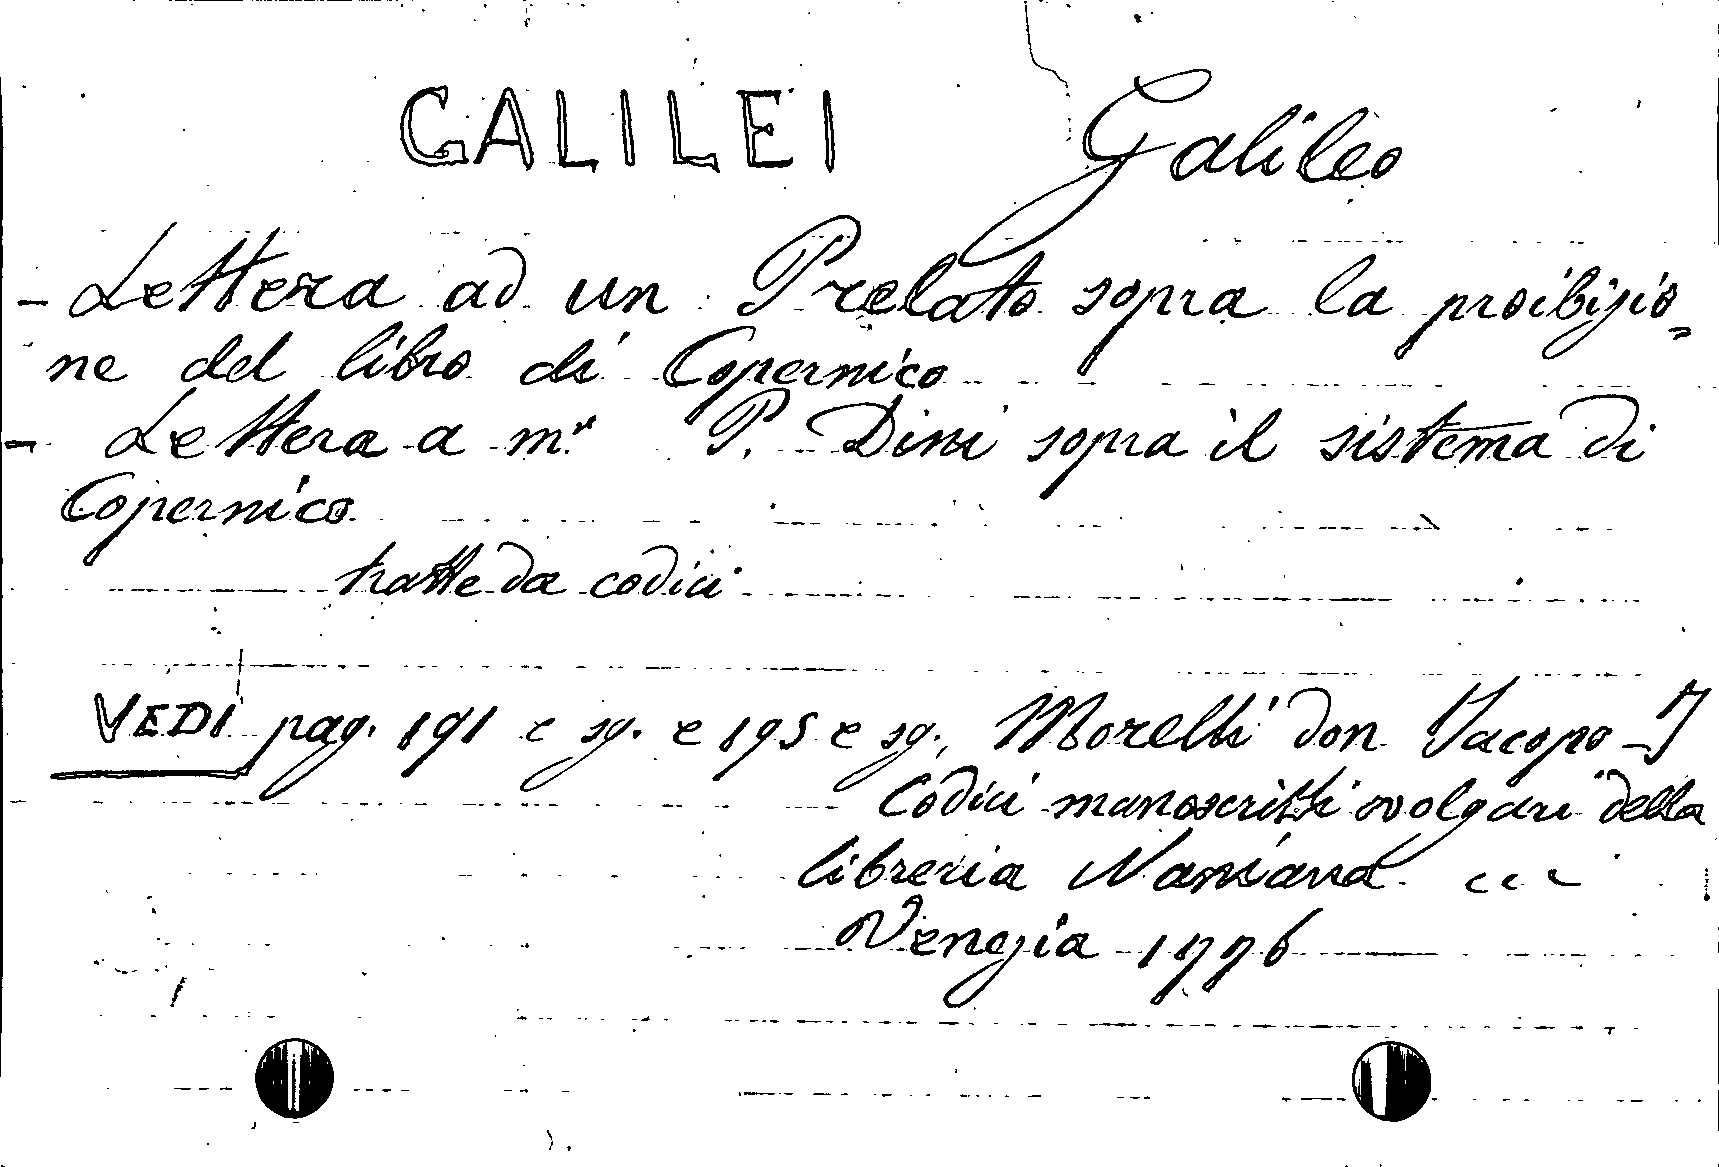 GALILEI Galileo
- Lettera ad un Prelato sopra la proibizio=
ne del libro di Copernico
- Lettera a mr P. Dini sopra il sistema di
Copernico
tratte da codici
VEDI pag. 191 e sg. e 195 e sg., Morelli don Jacopo - I
Codici manoscritti volgari della
libreria Naniana ...
Venezia 1776